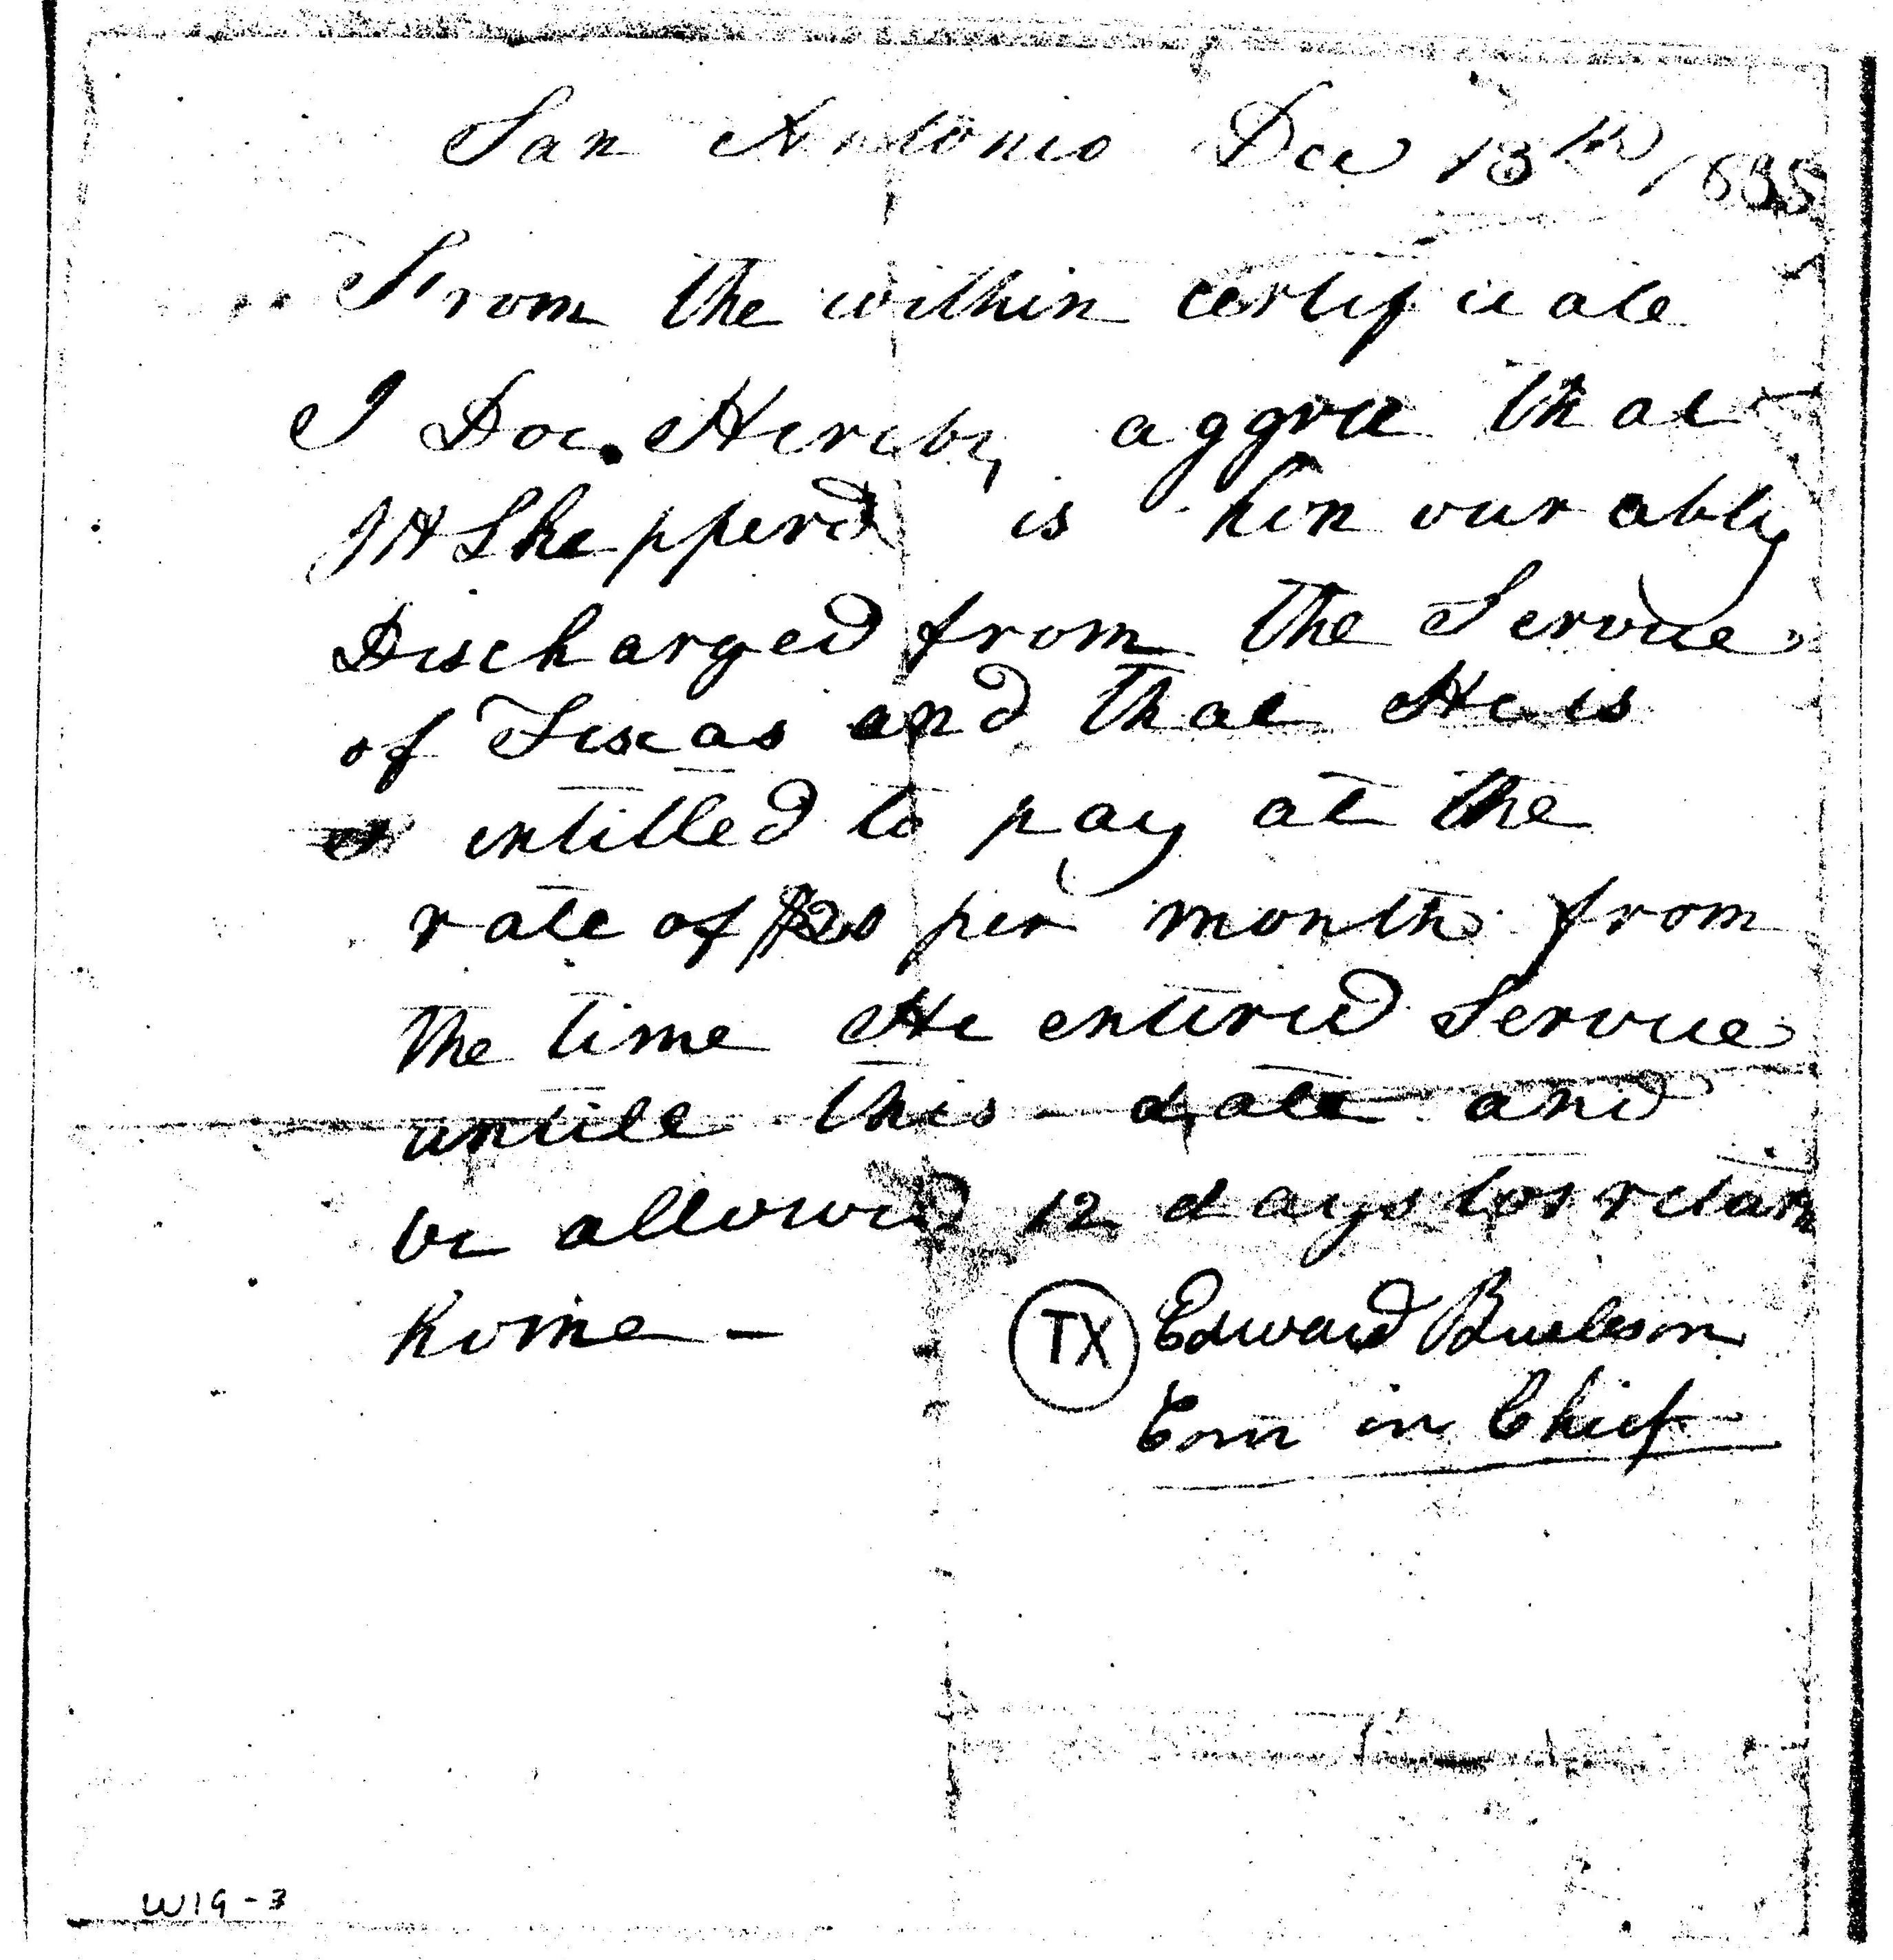 San Antonio Dec 13th 1835
From the within certificate
I Doe Hereby aggree that
JA Shepperd is honourably
Discharged from the Service
of Texas and that He is
entitled to pay at the
rate of $20 per month from
the time He entered Service
untill this date and
be allowed 12 days to return
home -
TX Edward Burleson
Com in Chief
W19-3